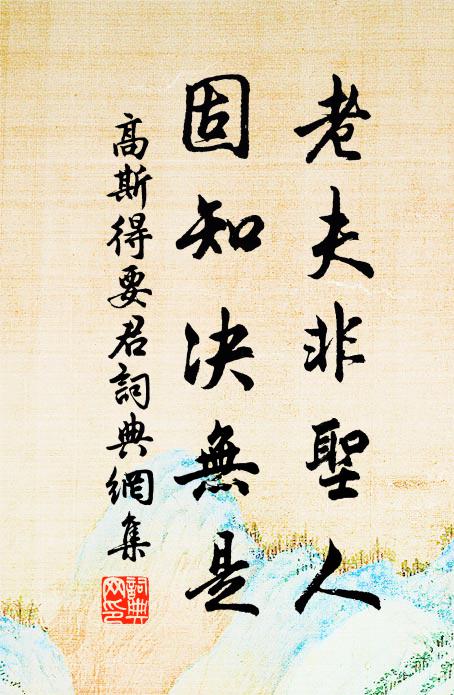 老夫非聖人
固知決無是
高斯得要君詞典網集
詞典網印